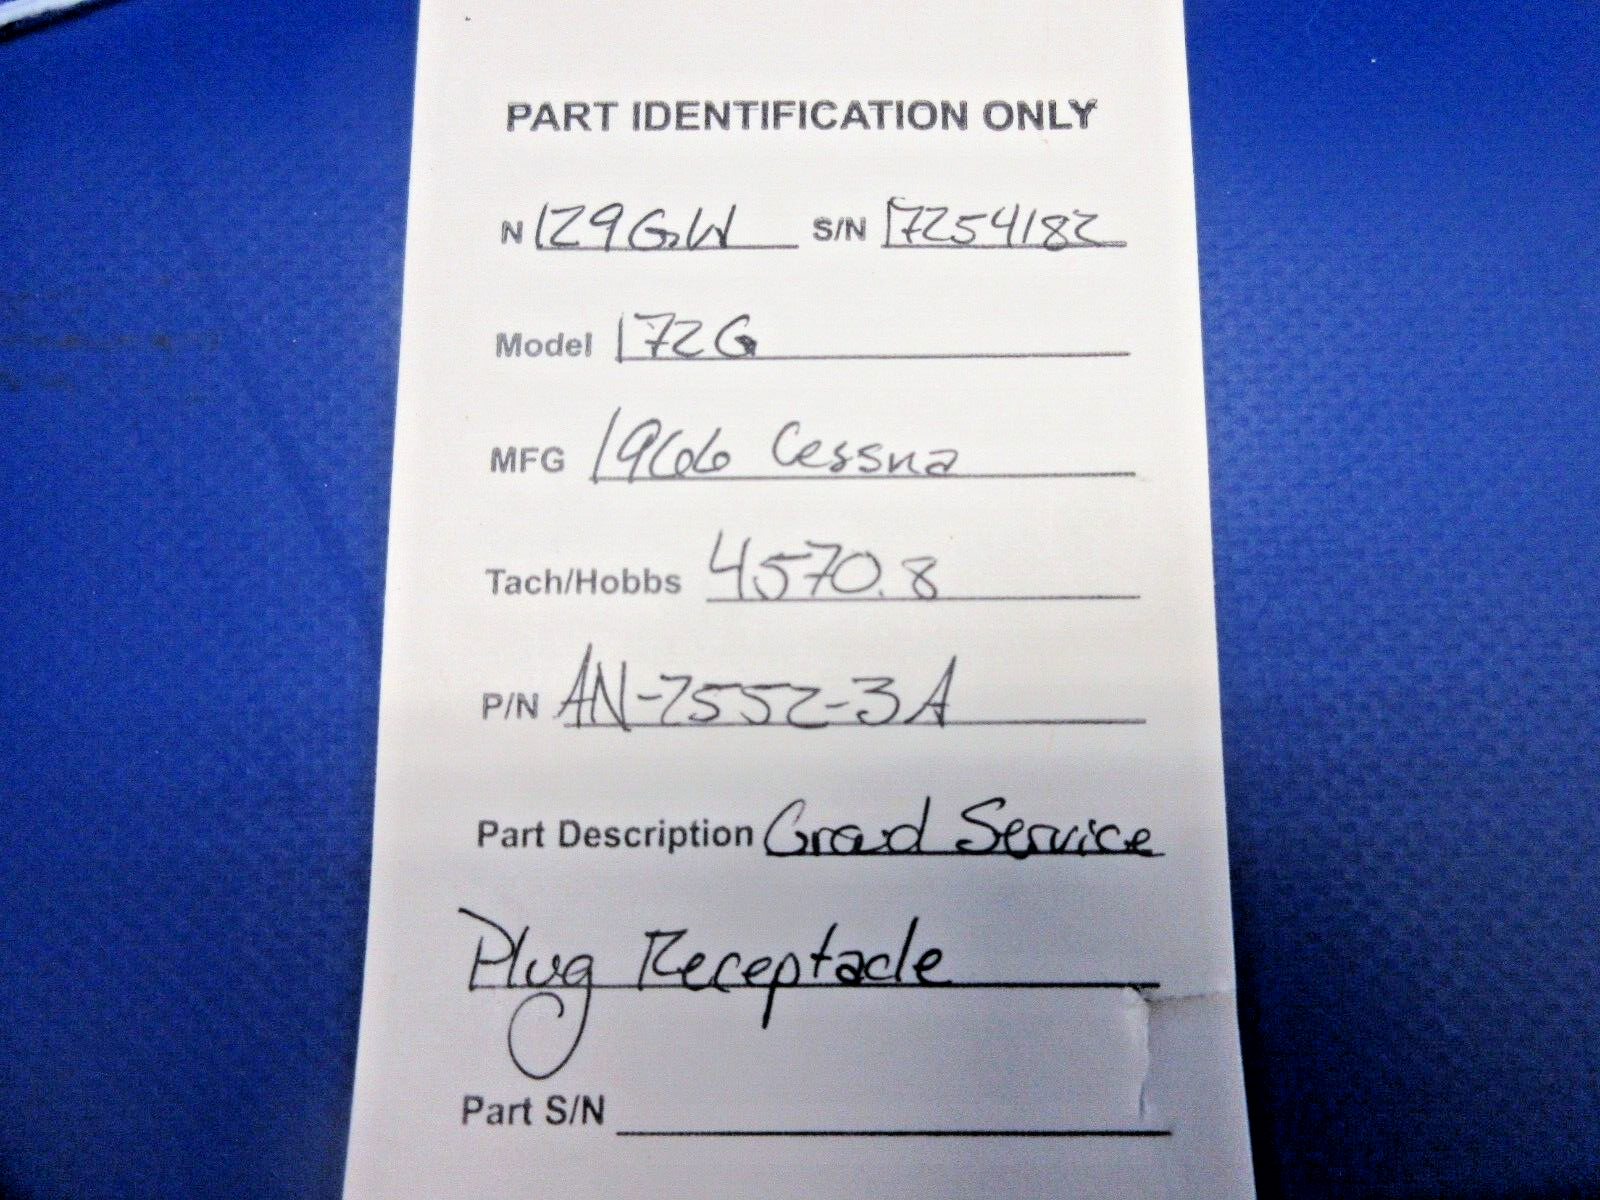 PART IDENTIFICATION ONLY
N 129GW S/N 17254182
Model 172G
MFG 1966 Cessna
Tach/Hobbs 4570.8
P/N AN-2552-3A
Part Description Groud Service
Plug Receptacle
Part S/N